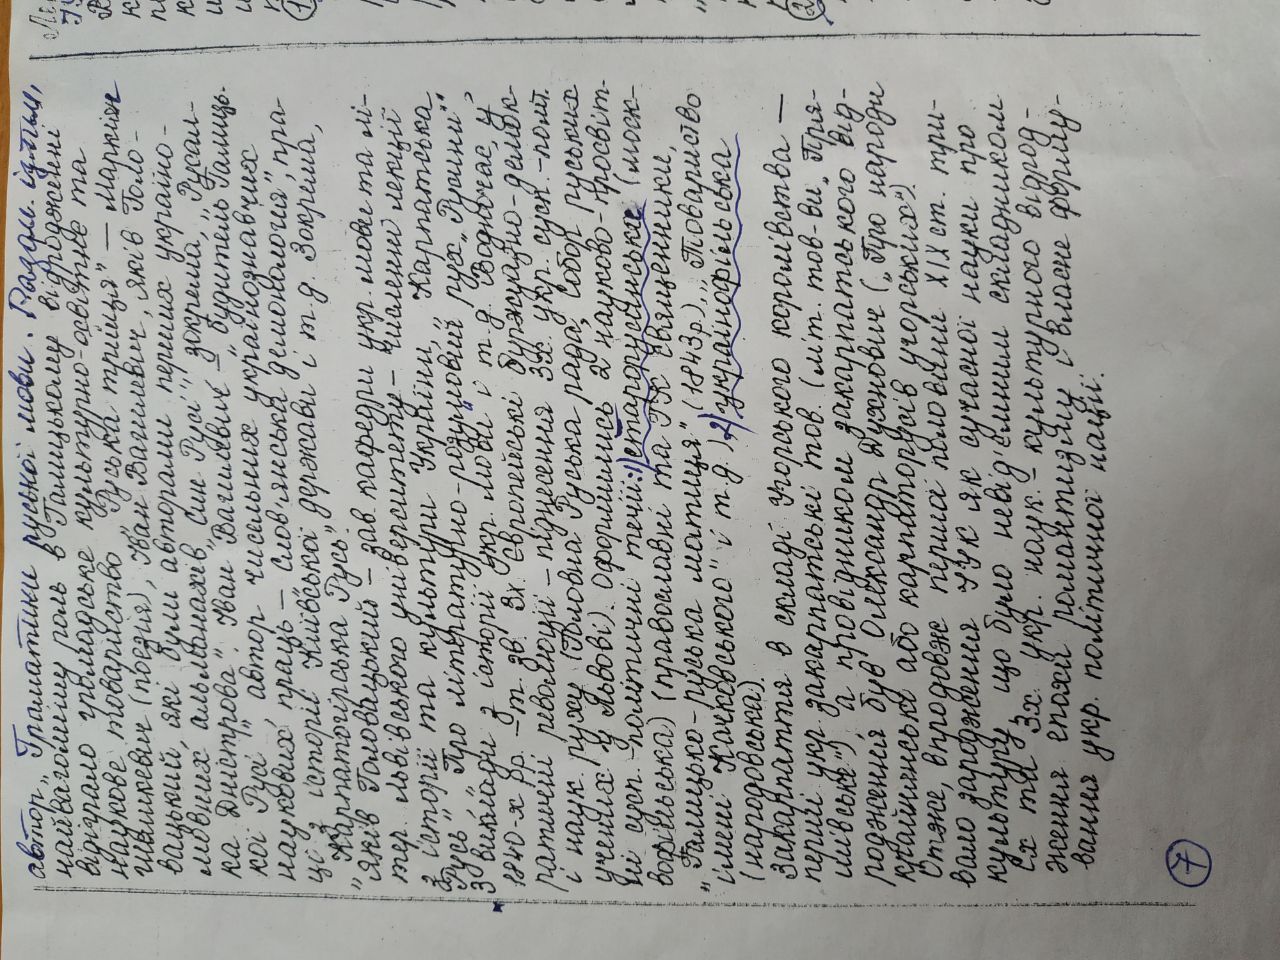 автор „Граматики руської мови. Разом. із тим,
найвагомішу роль в Галицькому відродженні
відіграло громадське культурно-освітнє та
наукове товариство „Руська трійця" — Маркіян
Шашкевич (поезія), Іван Вагилевич, Яків Голо-
вацький, які були авторами перших україно-
мовних альманахів „Син Русі", зокрема, „Русал-
ка Дністрова". Іван Вагилевич – „будитель Галиць-
кої Русі", автор чисельних українознавчих
наукових праць – „Слов'янська демонологія", пра-
ці з історії Київської держави і т.д. Зокрема,
„Карпатогірська Русь".
Яків Головацький – зав. кафедри укр. мови та лі-
тер. Львівського університету – численні лекції
з історії та культури України, „Карпатська
Русь", „Про літературно-розумовий рух „Русини",
З виклади з історії укр. мови" і т.д. Водночас, у
1840-х рр. – т. зв. Зх. Європейські буржуазно-демок-
ратичні революції – піднесення Зх. укр. сусп.-політ.
і наук. руху (Головна Руська рада, Собор руських
учених у Львові). Оформились 2 науково-просвіт-
ні сусп.-політичні течії: 1) старорусинська (моск-
вофільська) (православні та ГК священники,
„Галицько-руська матиця" (1843р.), „Товариство
імені Качковського" і т.д.) 2) українофільська
(народовська).
Закарпаття в складі Угорського королівства —
перші укр. закарпатські тов. (літ. тов-ви „Пря-
шівське"), а провідником закарпатського від-
родження був Олександр Духнович („Про народи
крайнянські або карпаторусів угорських").
Отже, впродовж першої половини XIX ст. три-
вало зародження ІУК як сучасної науки про
культуру, що було невід'ємним складником
Сх та Зх. укр. наук.- культурного відрод-
ження епохи романтизму і власне форму-
вання укр. політичної нації.
7